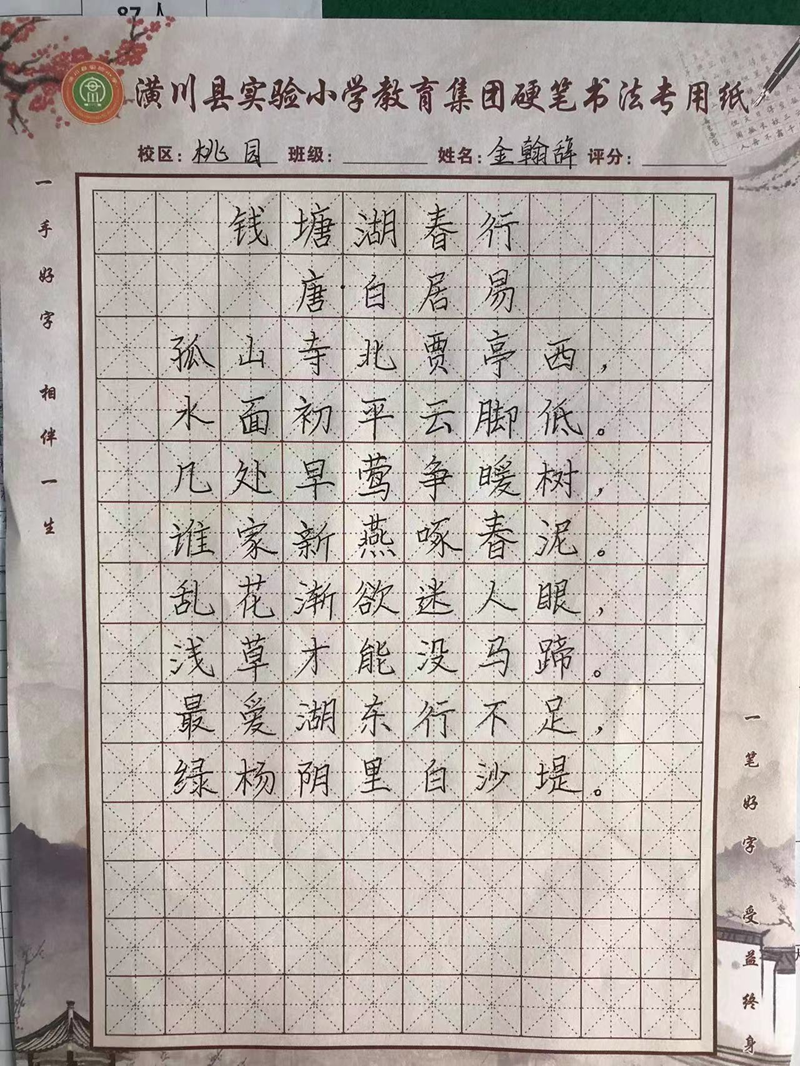 87人
潢川县实验小学教育集团硬笔书法专用纸
校区：桃园 班级： 姓名：金翰辞 评分：
一手好字 相伴一生
钱塘湖春行
唐·白居易
孤山寺北贾亭西，
水面初平云脚低。
几处早莺争暖树，
谁家新燕啄春泥。
乱花渐欲迷人眼，
浅草才能没马蹄。
最爱湖东行不足，
绿杨阴里白沙堤。
一笔好字 受益终身